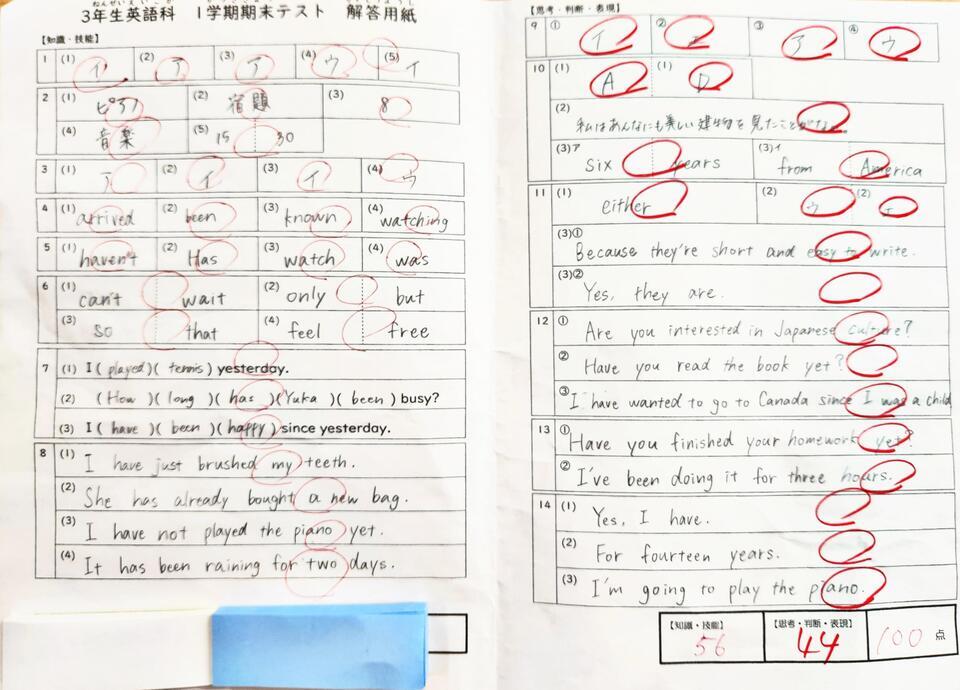 ねんせいえいごか
3年生英語科 1学期期末テスト 解答用紙
【知識・技能】
1 (1) イ (2) ア (3) ア (4) ウ (5) イ
2 (1) ピアノ (2) 宿題 (3) 8
(4) 音楽 (5) 15 30
3 (1) ア (2) イ (3) イ (4) ウ
4 (1) arrived (2) been (3) known (4) watching
5 (1) haven't (2) Has (3) watch (4) was
6 (1) can't wait (2) only but
(3) so that (4) feel free
7 (1) I ( played )( tennis ) yesterday.
(2) ( How )( long )( has )( Yuka )( been ) busy?
(3) I ( have )( been )( happy ) since yesterday.
8 (1) I have just brushed my teeth.
(2) She has already bought a new bag.
(3) I have not played the piano yet.
(4) It has been raining for two days.
【思考・判断・表現】
9 ① イ ② エ ③ ア ④ ウ
10 (1) A (1) D
(2) 私はあんなにも美しい建物を見たことがない
(3)ア six years (3)イ from America
11 (1) either (2) ウ (2) エ
(3)① Because they're short and easy to write.
(3)② Yes, they are.
12 ① Are you interested in Japanese culture?
② Have you read the book yet?
③ I have wanted to go to Canada since I was a child
13 ① Have you finished your homework yet?
② I've been doing it for three hours.
14 (1) Yes, I have.
(2) For fourteen years.
(3) I'm going to play the piano.
【知識・技能】 56 【思考・判断・表現】 44 100 点